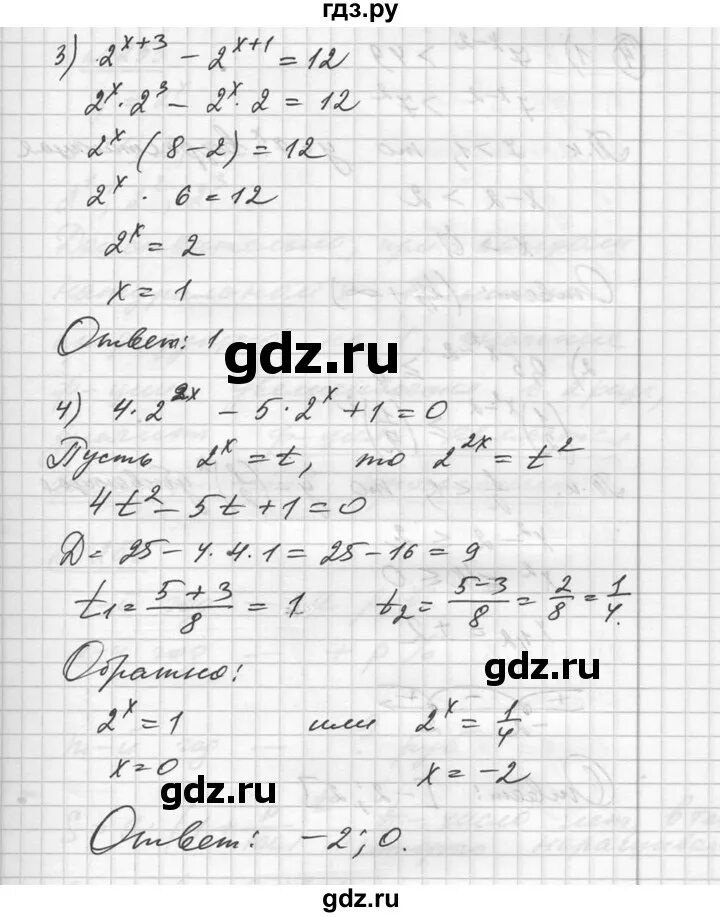 гдз.ру
3) 2^{x+3} − 2^{x+1} = 12
2^x · 2^3 − 2^x · 2 = 12
2^x (8−2) = 12
2^x · 6 = 12
2^x = 2
x = 1
Ответ: 1
gdz.ru
4) 4·2^{2x} − 5·2^x + 1 = 0
Пусть 2^x = t, то 2^{2x} = t^2
4t^2 − 5t + 1 = 0
Д = 25 − 4·4·1 = 25 − 16 = 9
t_1 = \frac{5+3}{8} = 1 t_2 = \frac{5−3}{8} = \frac{2}{8} = \frac{1}{4}.
Обратно:
gdz.ru
2^x = 1 или 2^x = \frac{1}{4}
x = 0 x = −2
gdz.ru
Ответ: −2; 0.
gdz.ru